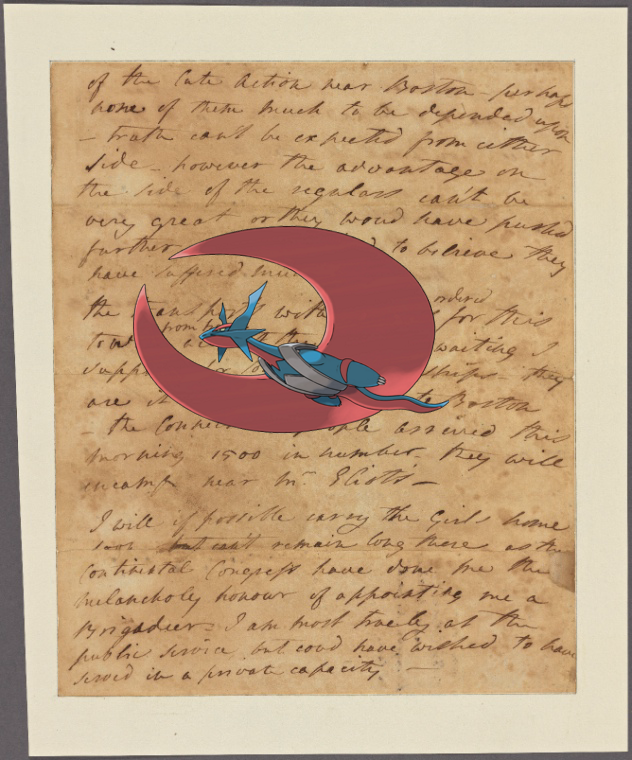 of the late Action near Boston - perhaps
none of them much to be depended upon
- truth can't be expected from either
side - however the advantage on
the side of the regulars can't be
very great or they woud have pushed
further to believe they
have suffered
ordered
the transports with for this
from
waiting I
they
are to Boston
- the people assured this
morning 1500 in number. they will
encamp near Mr. Eliots -
I will if possible carry the Girls home
soon but can't remain long there as the
Continental Congress have done me the
melancholy honour of appointing me a
Brigadier. I am most truely at the
public service but coud have wished to have
served in a private capacity -